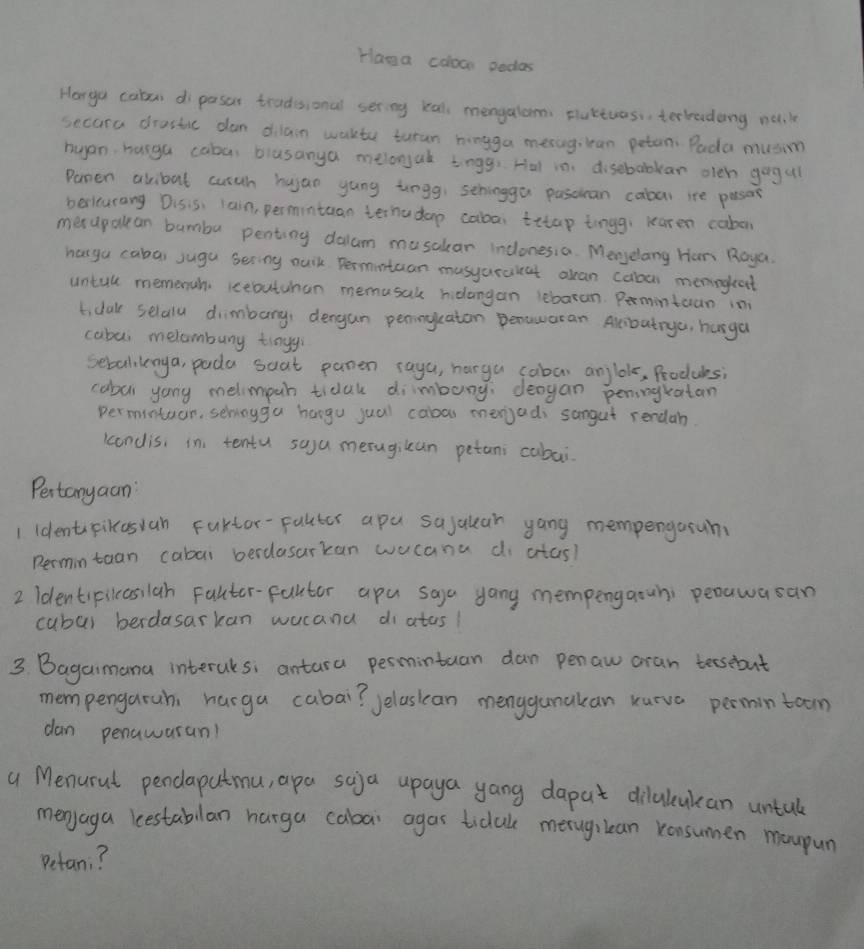 Harga cabai pedas
Harga cabai di pasar tradisional sering kali mengalami fluktuasi, terkadang naik
secara drastic dan dilain waktu turun hingga merugikan petani. Pada musim
hujan harga cabai biasanya melonjak tinggi. Hal ini disebabkan oleh gagal
Panen akibat curah hujan yang tinggi, sehingga pasokan cabai ke pasar
berkurang Disisi lain, permintaan terhadap cabai tetap tinggi karen cabai
merupakan bumbu penting dalam masakan Indonesia. Menjelang Hari Raya.
harga cabai juga sering naik. Permintaan masyarakat akan cabai meningkat
untuk memenuhi kebutuhan memasak hidangan lebaran. Permintaan ini
tidak selalu diimbangi dengan peningkatan penawaran Akibatnya, harga
cabai melambung tinggi
Sebaliknya, pada saat panen raya, harga cabai anjlok. Produksi
cabai yang melimpah tidak diimbangi dengan peningkatan
permintaan, sehingga harga jual cabai menjadi sangat rendah.
Kondisi ini tentu saja merugikan petani cabai.
Pertanyaan:
1 Identifikasilah faktor-faktor apa sajakah yang mempengaruhi
Permintaan cabai berdasarkan wacana di atas!
2 Identifikasilah faktor-faktor apa saja yang mempengaruhi penawaran
cabai berdasarkan wacana di atas!
3. Bagaimana interaksi antara permintaan dan penawaran tersebut
mempengaruhi harga cabai? jelaskan menggunakan kurva permintaan
dan penawaran!
4 Menurut pendapatmu, apa saja upaya yang dapat dilakukan untuk
menjaga kestabilan harga cabai agar tidak merugikan konsumen maupun
Petani?